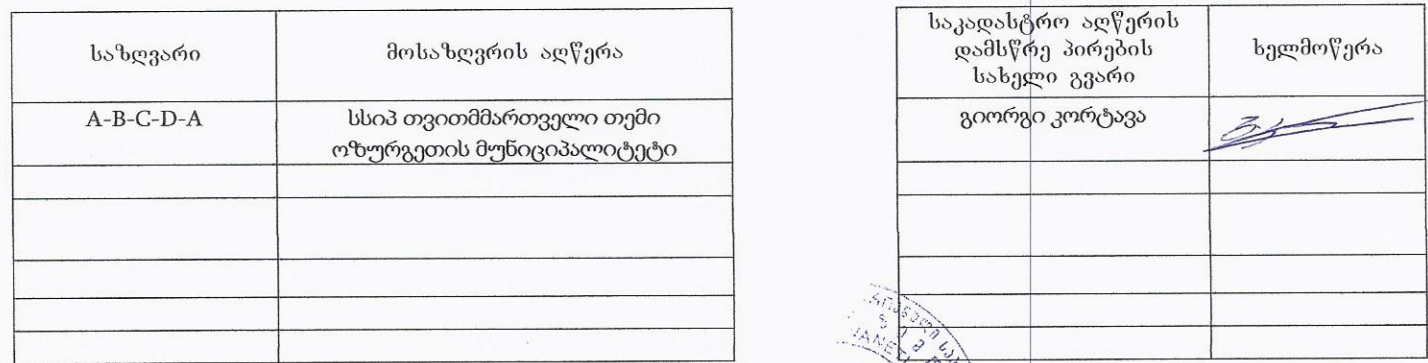 საზღვარი
მოსაზღვრის აღწერა
A-B-C-D-A
სსიპ თვითმმართველი თემი
ოზურგეთის მუნიციპალიტეტი
საკადასტრო აღწერის
დამსწრე პირების
სახელი გვარი
ხელმოწერა
გიორგი კორტავა